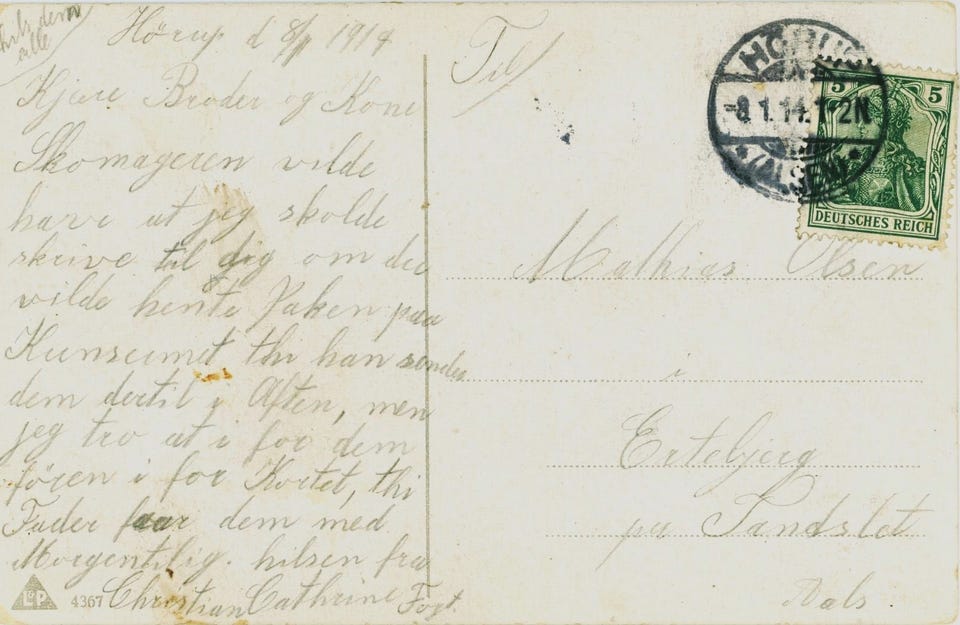 hils dem
alle
Hörup d 8/1 1914
Kjære Broder og Kone
Skomageren vilde
have at jeg skolde
skrive til dig om du
vilde hente Paken paa
Kunsumet thi han sender
dem dertil i Aften, men
jeg tro at i for dem
fören i for Kortet, thi
Fader faar dem med
Morgentilig. hilsen fra
Christian Cathrine Fogt
L&P 4367
Til
HÖRUP
-8.1.14.1-2N
*(ALSEN)*
5 5
DEUTSCHES REICH
Mathias Olsen
i
Ertebjerg
pr Tandslet
Aals